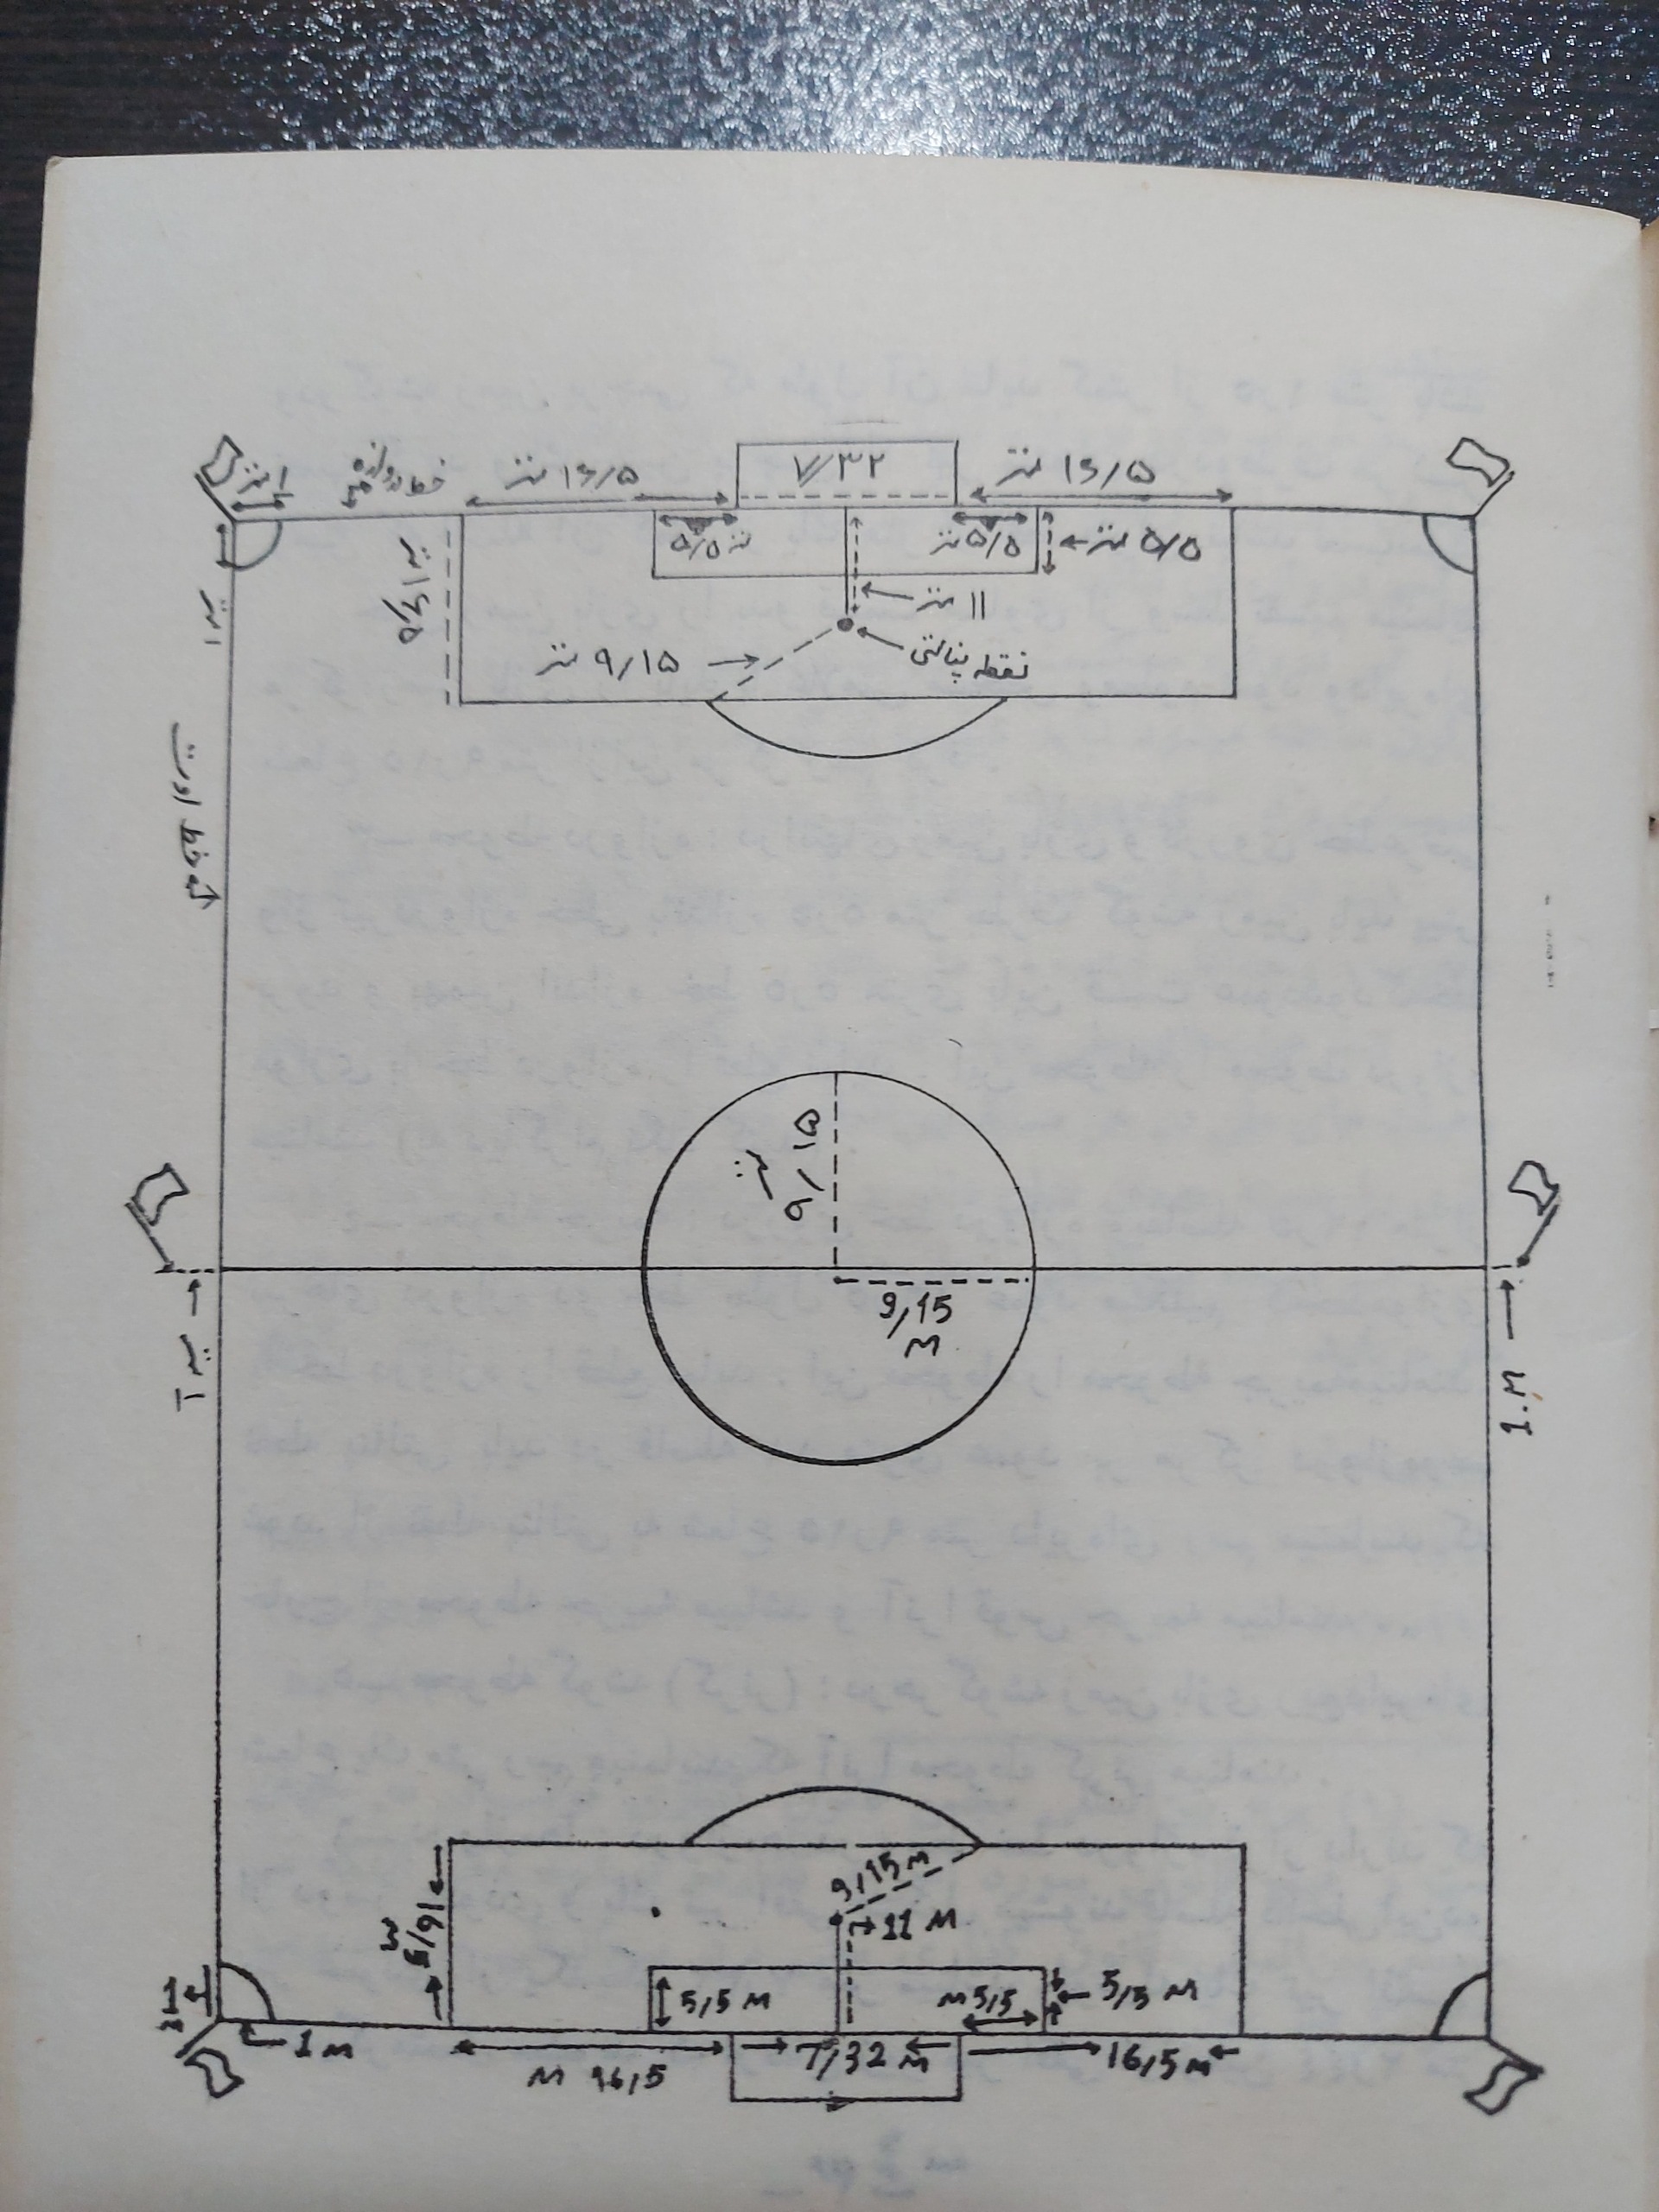 ۱ متر
خط دروازه
۱۶/۵ متر
۷/۳۲
۱۶/۵ متر
۵/۵ متر
۵/۵ متر
۵/۵ متر
۱۶/۵ متر
۱۱ متر
۱ متر
۹/۱۵ متر
نقطه پنالتی
خط اوت
۹/۱۵ متر
9,15
M
۱ متر
1.M
9,15 M
11 M
16,5
M
5,5 M
M 5,5
5,5 M
1 M
1 M
M 16,5
7,32 M
16,5 M